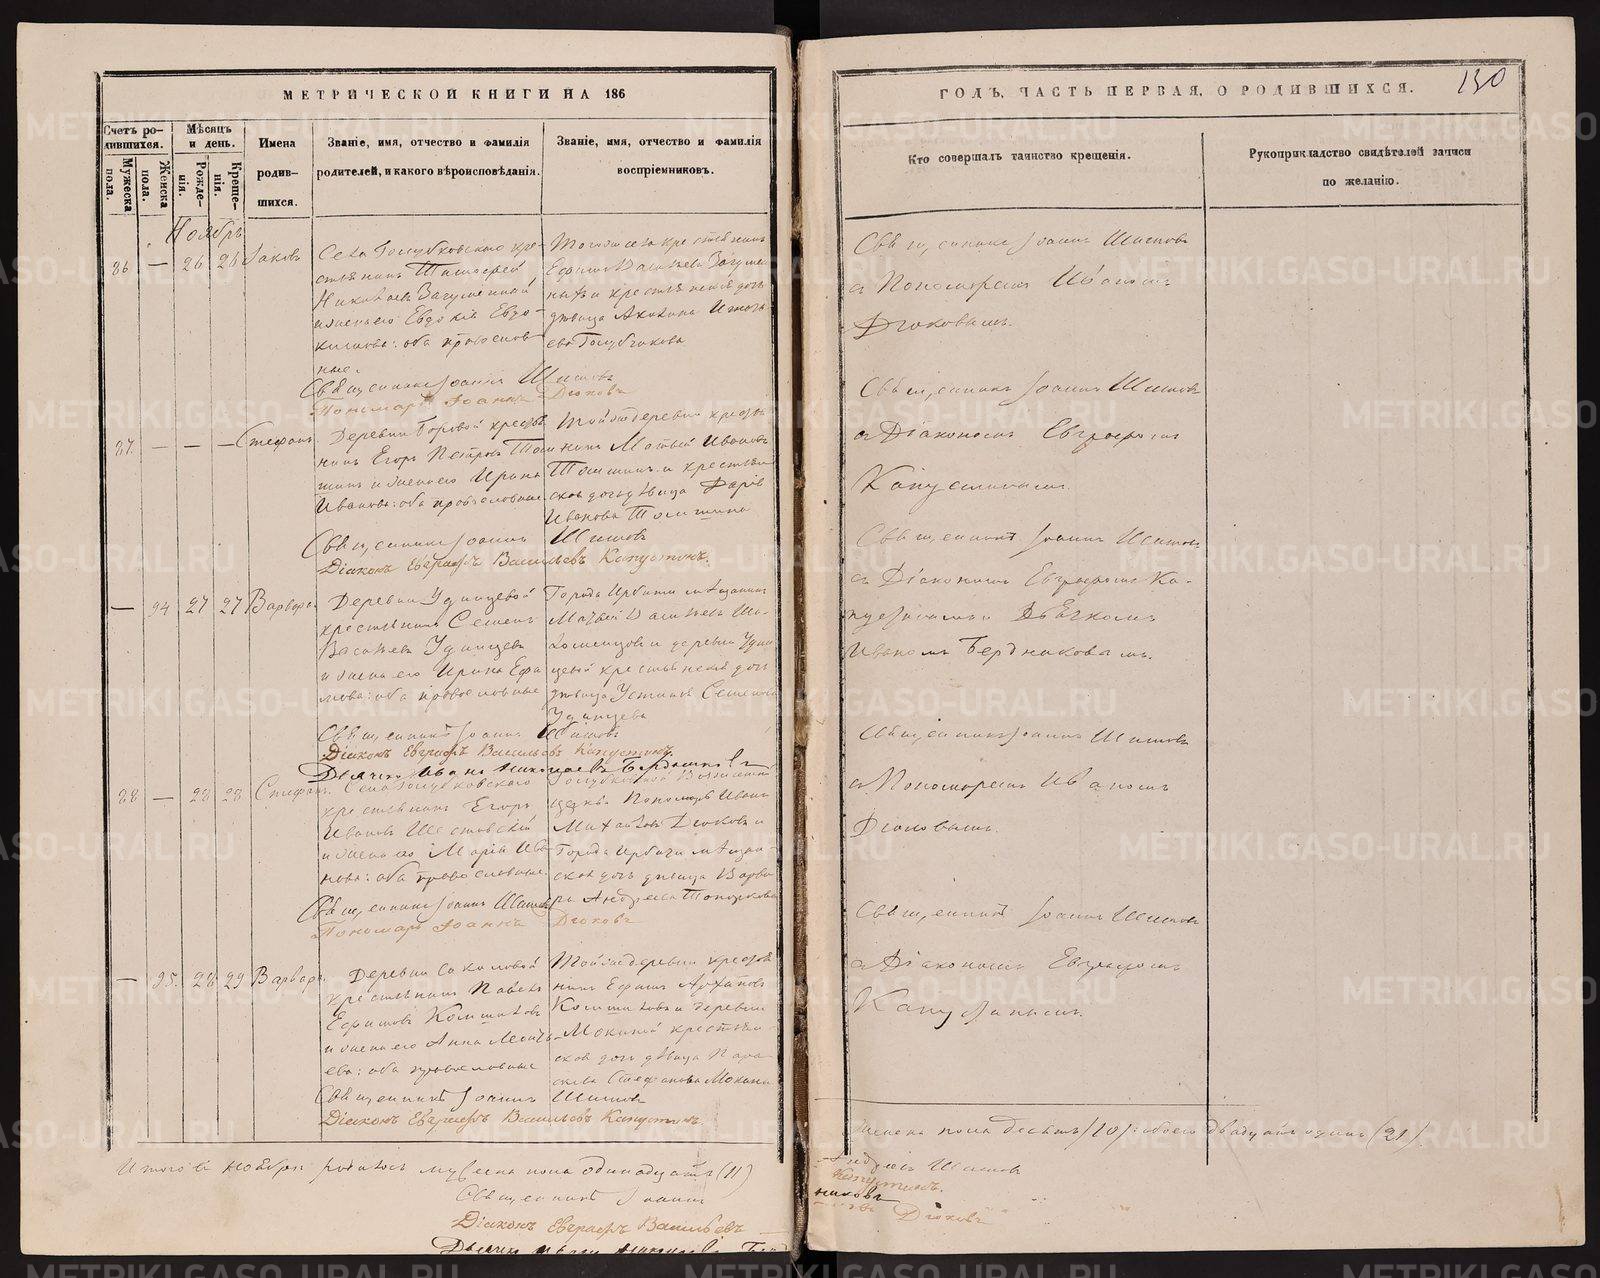 МЕТРИЧЕСКОЙ КНИГИ НА 186
Счетъ родившихся.
Мужеска пола.
Женска пола.
Мѣсяцъ и день.
Рожденія.
Крещенія.
Имена родившихся.
Званіе, имя, отчество и фамилія
родителей, и какого вѣроисповѣданія.
Званіе, имя, отчество и фамилія
воспріемниковъ.
Ноябрь
86 — 26 26 Іаковъ
Села Голубковскаго кре-
стьянинъ Тимофей
Никиты
и жена его Евдокія Евдо-
кимова: оба православ-
ные.
Тогоже села крестьянинъ
Ефимъ
и крестьянская дочь
дѣвица Акилина
Голубчикова
Священникъ Іоаннъ Шишовъ
Пономарь Іоаннъ Дюковъ
87. — — — Стефанъ
Деревни Боровой кресть-
нинъ Егоръ Петровъ Том-
шинъ и жена его Ирина
Иванова: оба православные
Тойже деревни кресть-
нинъ Матвей Ивановъ
Томшинъ и крестьян-
ская дочь дѣвица Дарья
Иванова Томшина
Священникъ Іоаннъ Шишовъ
Діаконъ Евграфъ Васильевъ Капустинъ.
— 94 27 27 Варвара
Деревни Удинцевой
крестьянинъ Семенъ
Васильевъ Удинцевъ
и жена его Ирина Ефи-
мова: оба православные
Города Ирбити мѣщанинъ
Матвей Васильевъ
и деревни Удин-
цевой крестьянская дочь
дѣвица Устинья Семенова
Удинцева
Священникъ Іоаннъ Шишовъ
Діаконъ Евграфъ Васильевъ Капустинъ
Дьячекъ Иванъ Николаевъ Бердниковъ
88 — 28 28 Стефанъ
Села Голубковскаго
крестьянинъ Егоръ
Ивановъ Шестовскій
и жена его Марія Ива-
нова: оба православные
Голубковской Вознесенской
церкви Пономарь Иванъ
Михайловъ Дюковъ и
Города Ирбити мѣщан-
ская дочь дѣвица Варва-
ра Андреева Топоркова
Священникъ Іоаннъ Шишовъ
Пономарь Іоаннъ Дюковъ
— 95. 28 29 Варвара
Деревни Соколовой
крестьянинъ Павелъ
Ефимовъ
и жена его Анна Леонть-
ева: оба православные
Тойже деревни кресть-
нинъ Ефимъ
и деревни
Мокиной крестьян-
ская дочь дѣвица Пара-
скева Стефанова Мокина
Священникъ Іоаннъ Шишовъ
Діаконъ Евграфъ Васильевъ Капустинъ.
Итого въ ноябрѣ родилось мужеска пола одинадцать (11)
Священникъ Іоаннъ
Діаконъ Евграфъ Васильевъ
ГОДЪ, ЧАСТЬ ПЕРВАЯ, О РОДИВШИХСЯ.
130
Кто совершалъ таинство крещенія.
Рукоприкладство свидѣтелей записи
по желанію.
Священникъ Іоаннъ Шишовъ
съ Пономаремъ Иваномъ
Дюковымъ.
Священникъ Іоаннъ Шишовъ
съ Діакономъ Евграфомъ
Капустинымъ.
Священникъ Іоаннъ Шишовъ
съ Діакономъ Евграфомъ Ка-
пустинымъ и Дьячкомъ
Иваномъ Бердниковымъ.
Священникъ Іоаннъ Шишовъ
съ Пономаремъ Иваномъ
Дюковымъ.
Священникъ Іоаннъ Шишовъ
съ Діакономъ Евграфомъ
Капустинымъ.
Женска пола десять (10) обоего двадцать одинъ (21)
Шишовъ
Капустинъ.
никовъ
Дюковъ
METRIKI.GASO-URAL.RU